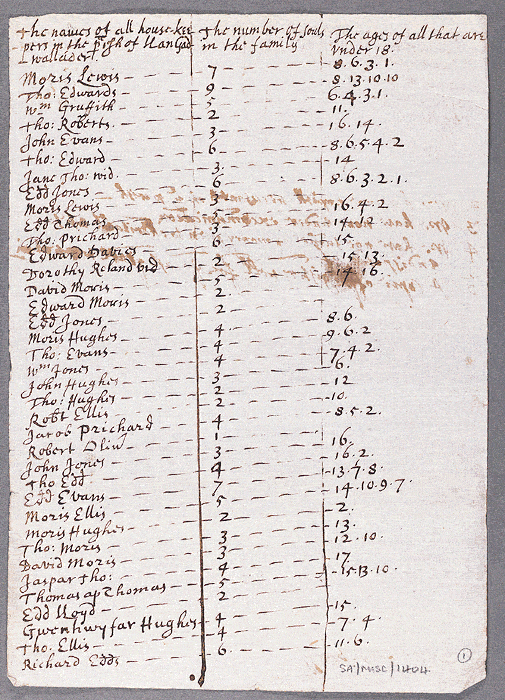 The names of all house-kee
pers in the p'ish of Llangad
Iwallader
Moris Lewis
Tho: Edwards
Wm Gruffith
Tho: Roberts
John Evans
Tho: Edward
Jane Tho: wid
Edd Jones
Moris Lewis
Edd Thomas
Tho: Prichard
Edward Davies
Dorothy Roland vid
David Moris
Edward Moris
Edd Jones
Moris Hughes
Tho: Evans
Wm Jones
John Hughes
Tho: Hughes
Robt Ellis
Jacob Prichard
Robert Oliv
John Jones
Tho Edd
Edd Evans
Moris Ellis
Moris Hughes
Tho: Moris
David Moris
Jaspar Tho:
Thomas ap Thomas
Edd Lloyd
Gwenhwyfar Hughes
Tho: Ellis
Richard Edds
The number of souls
in the family
7
9
5
2
3
6
3
6
3
5
3
6
2
5
2
2
4
4
4
3
2
2
4
1
3
4
7
5
2
3
3
4
5
2
4
4
6
The ages of all that are
under 18
8.6.3.1.
8.13.10.10
6.4.3.1.
11.
16.14.
8.6.5.4.2
14
8.6.3.2.1
16.4.2
14.12
15
15.13
14.16.
8.6.
9.6.2
7.4.2
6.
12
10.
8.5.2.
16.
16.2.
13.7.8
14.10.9.7
2.
13.
12.10.
17
15.13.10.
15.
7.4.
11.6.
SA/MISC/1404
1